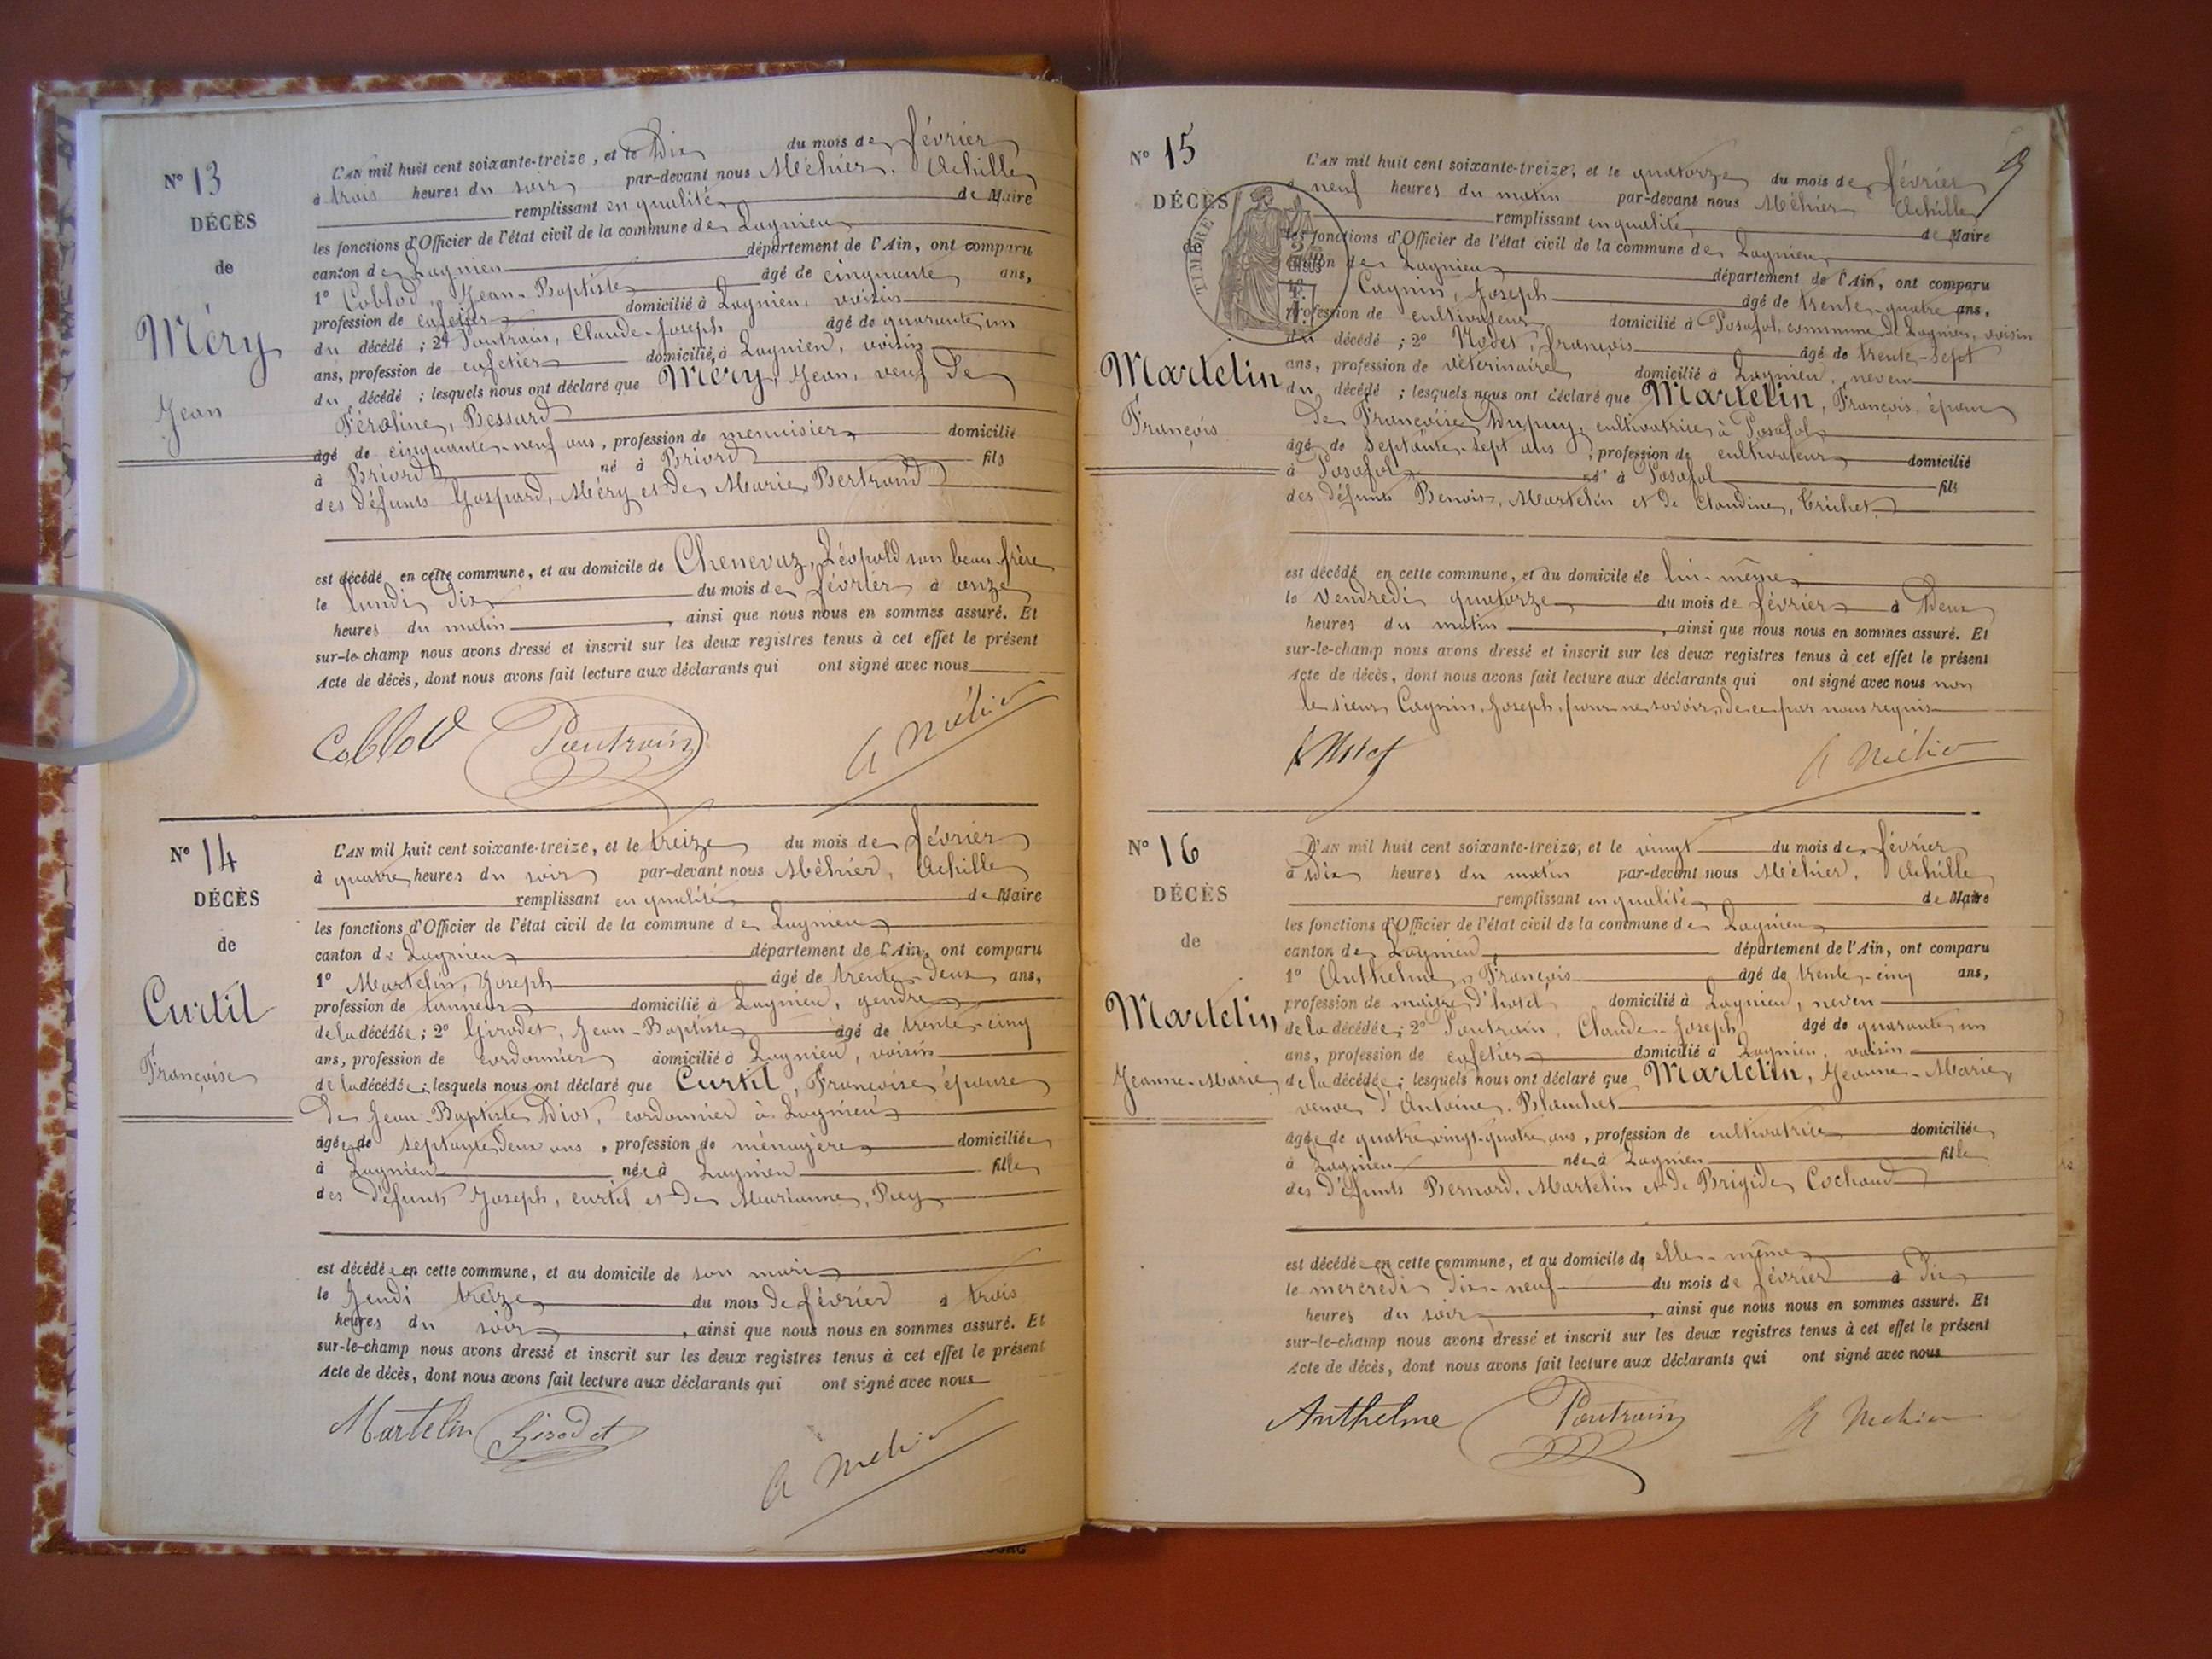 N° 13
DÉCÈS
de
Méry
Jean
L'AN mil huit cent soixante-treize, et le Dix du mois de février
à trois heures du soir par-devant nous Méhier, Achille
remplissant en qualité de Maire
les fonctions d'Officier de l'état civil de la commune de Lagnieu
canton de Lagnieu département de l'Ain, ont comparu
1° Coblod, Jean-Baptiste âgé de cinquante ans,
profession de cafetier domicilié à Lagnieu, voisin
du décédé ; 2° Poutrain, Claude-Joseph âgé de quarante un
ans, profession de cafetier domicilié à Lagnieu, voisin
du décédé ; lesquels nous ont déclaré que Méry, Jean, veuf de
Féroline, Bessard
âgé de cinquante-neuf ans, profession de menuisier domicilié
à Briord né à Briord fils
des défunts Gaspard, Méry et de Marie, Bertrand
est décédé en cette commune, et au domicile de Chenevaz, Léopold son beau-frère
le lundi dix du mois de février à onze
heures du matin, ainsi que nous nous en sommes assuré. Et
sur-le-champ nous avons dressé et inscrit sur les deux registres tenus à cet effet le présent
Acte de décès, dont nous avons fait lecture aux déclarants qui ont signé avec nous
Coblod Poutrain A Méhier
N° 14
DÉCÈS
de
Curtil
Françoise
L'AN mil huit cent soixante-treize, et le treize du mois de février
à quatre heures du soir par-devant nous Méhier, Achille
remplissant en qualité de Maire
les fonctions d'Officier de l'état civil de la commune de Lagnieu
canton de Lagnieu département de l'Ain, ont comparu
1° Martelin, Joseph âgé de trente-deux ans,
profession de tanneur domicilié à Lagnieu, gendre
de la décédée ; 2° Girodet, Jean-Baptiste âgé de trente-cinq
ans, profession de cordonnier domicilié à Lagnieu, voisin
de la décédée ; lesquels nous ont déclaré que Curtil, Françoise épouse
de Jean-Baptiste Diot, cordonnier à Lagnieu
âgée de septante deux ans, profession de ménagère domiciliée
à Lagnieu née à Lagnieu fille
des défunts Joseph, Curtil et de Marianne, Puy
est décédée en cette commune, et au domicile de son mari
le Jeudi treize du mois de février à trois
heures du soir, ainsi que nous nous en sommes assuré. Et
sur-le-champ nous avons dressé et inscrit sur les deux registres tenus à cet effet le présent
Acte de décès, dont nous avons fait lecture aux déclarants qui ont signé avec nous
Martelin Girodet A Méhier
N° 15
DÉCÈS
de
TIMBRE
Martelin
François
L'AN mil huit cent soixante-treize, et le quatorze du mois de février
à neuf heures du matin par-devant nous Méhier Achille
remplissant en qualité de Maire
les fonctions d'Officier de l'état civil de la commune de Lagnieu
canton de Lagnieu département de l'Ain, ont comparu
Cagnin, Joseph âgé de trente-quatre ans,
profession de cultivateur domicilié à Posafol commune de Lagnieu, voisin
du décédé ; 2° Modet, François âgé de trente-sept
ans, profession de vétérinaire domicilié à Lagnieu, neveu
du décédé ; lesquels nous ont déclaré que Martelin, François, époux
de Françoise Dupuy, cultivatrice à Posafol
âgé de Septante-sept ans, profession de cultivateur domicilié
à Posafol né à Posafol fils
des défunts Benoit, Martelin et de Claudine, Trichet
est décédé en cette commune, et au domicile de lui-même
le Vendredi quatorze du mois de février à Deux
heures du matin, ainsi que nous nous en sommes assuré. Et
sur-le-champ nous avons dressé et inscrit sur les deux registres tenus à cet effet le présent
Acte de décès, dont nous avons fait lecture aux déclarants qui ont signé avec nous non
le sieur Cagnin, Joseph, pour ne savoir, de ce par nous requis
A Méhier
N° 16
DÉCÈS
de
Martelin
Jeanne-Marie
L'AN mil huit cent soixante-treize, et le vingt du mois de février
à Dix heures du matin par-devant nous Méhier, Achille
remplissant en qualité de Maire
les fonctions d'Officier de l'état civil de la commune de Lagnieu
canton de Lagnieu, département de l'Ain, ont comparu
1° Anthelme, François âgé de trente-cinq ans,
profession de maître d'hotel domicilié à Lagnieu, neveu
de la décédée ; 2° Poutrain, Claude-Joseph âgé de quarante un
ans, profession de cafetier domicilié à Lagnieu, voisin
de la décédée ; lesquels nous ont déclaré que Martelin, Jeanne-Marie,
veuve d'Antoine, Blanchet
âgée de quatre vingt-quatre ans, profession de cultivatrice domiciliée
à Lagnieu née à Lagnieu fille
des défunts Bernard, Martelin et de Brigide Cochand
est décédée en cette commune, et au domicile de elle-même
le mercredi dix-neuf du mois de février à Dix
heures du soir, ainsi que nous nous en sommes assuré. Et
sur-le-champ nous avons dressé et inscrit sur les deux registres tenus à cet effet le présent
Acte de décès, dont nous avons fait lecture aux déclarants qui ont signé avec nous
Anthelme Poutrain A Méhier